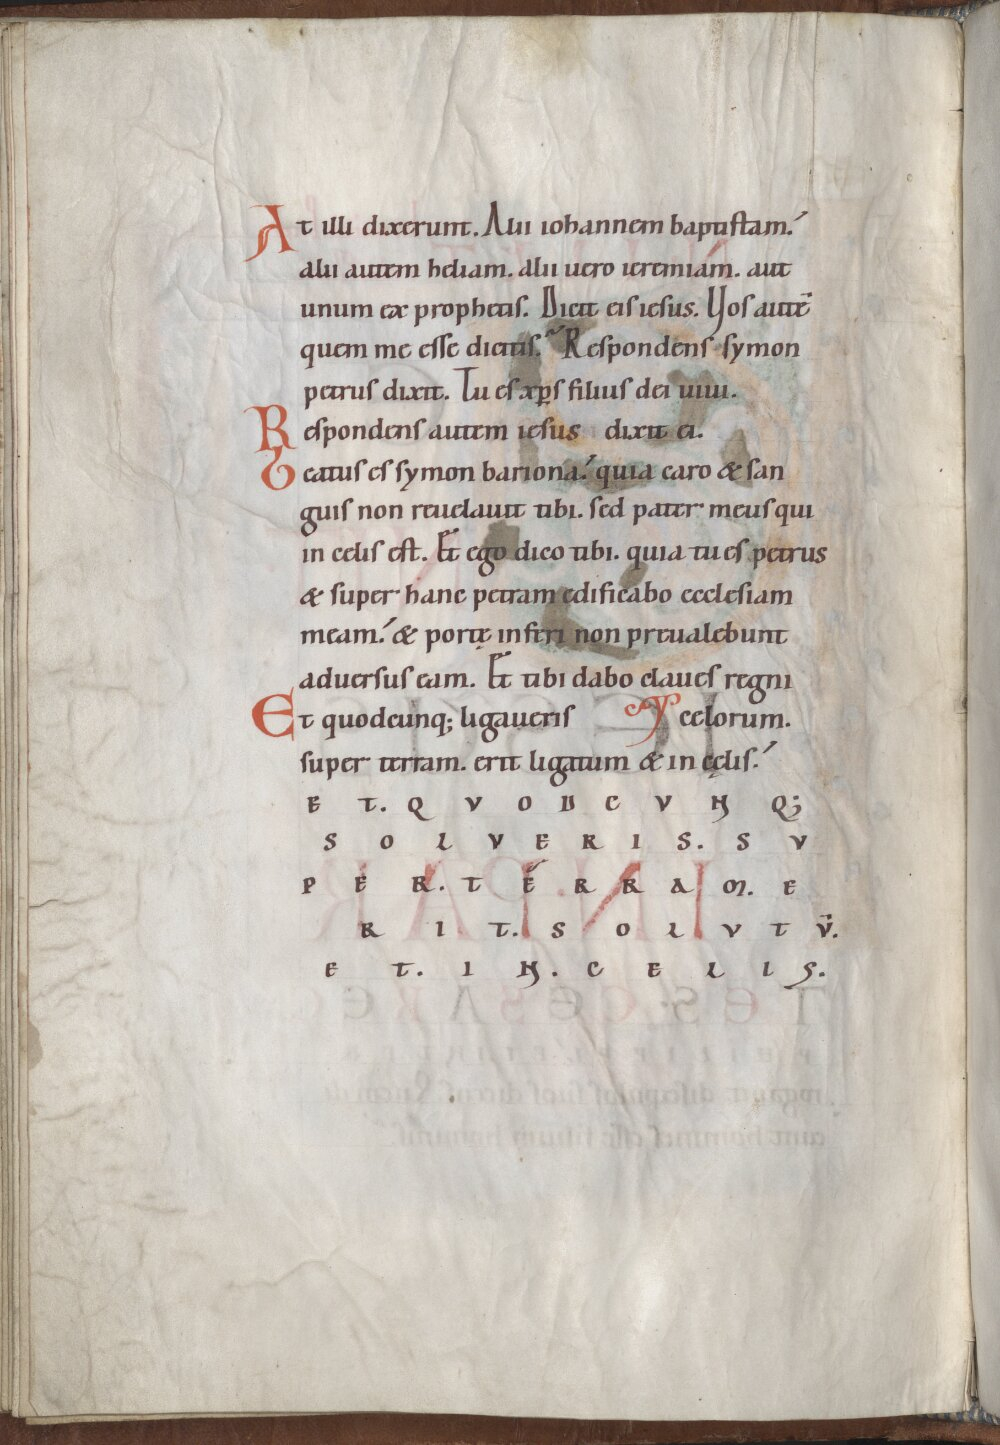 At illi dixerunt. Alii iohannem baptistam.
alii autem heliam. alii uero ieremiam. aut
unum ex prophetis. Dicit eis iesus. Vos autē
quem me esse dicitis. Respondens symon
petrus dixit. Tu es xp̄s filius dei uiui.
Respondens autem iesus dixit ei.
Beatus es symon bariona. quia caro & san
guis non reuelauit tibi. sed pater meus qui
in celis est. Et ego dico tibi. quia tu es petrus
& super hanc petram edificabo ecclesiam
meam. & portę inferi non preualebunt
aduersus eam. Et tibi dabo claues regni
Et quodcunq; ligaueris celorum.
super terram. erit ligatum & in cęlis.
E T. Q V O D C V N Q;
S O L V E R I S. S V
P E R. T E R R A M. E
R I T. S O L V T V̄.
E T. I N. C E L I S.